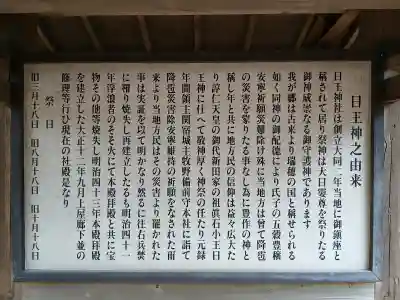 日王神之由来
日王神社は創立大同二年当地に御鎮座と
称されて居り祭神は大日孁尊を祭りたる
御神威崇なる御守護神であります
我が郷は古来より瑞穂の国と称せられる
如く同神の御配徳により氏子の五穀豊穣
安寧祈願災難除け殊に当地方は曾て降雹
の災害を蒙りたる事なし為に豊作の神と
稱し年と共に地方民の信仰は益々広大た
り淳仁天皇の御代新田家の祖眞石小王日
王神に仕へて敬神厚く神祭の任たり元録
年間領主関宿城主牧野備前守本社に詣で
降雹災害除安寧維持の祈願をなされた雨
来より当地方民はその災害より罹かれた
事は実証を以て明かなり然るに往右兵焚
に罹り焼失し再建立したるも明治四十一
年浮浪者のそそ火にて本殿拝殿と共に宝
物その他等焼失し明治四十三年本殿拝殿
を建立した大正十二年九月上屋廊下並の
修理等行ひ現在の社殿となり
祭日
旧三月十八日 旧八月十八日 旧十月十八日